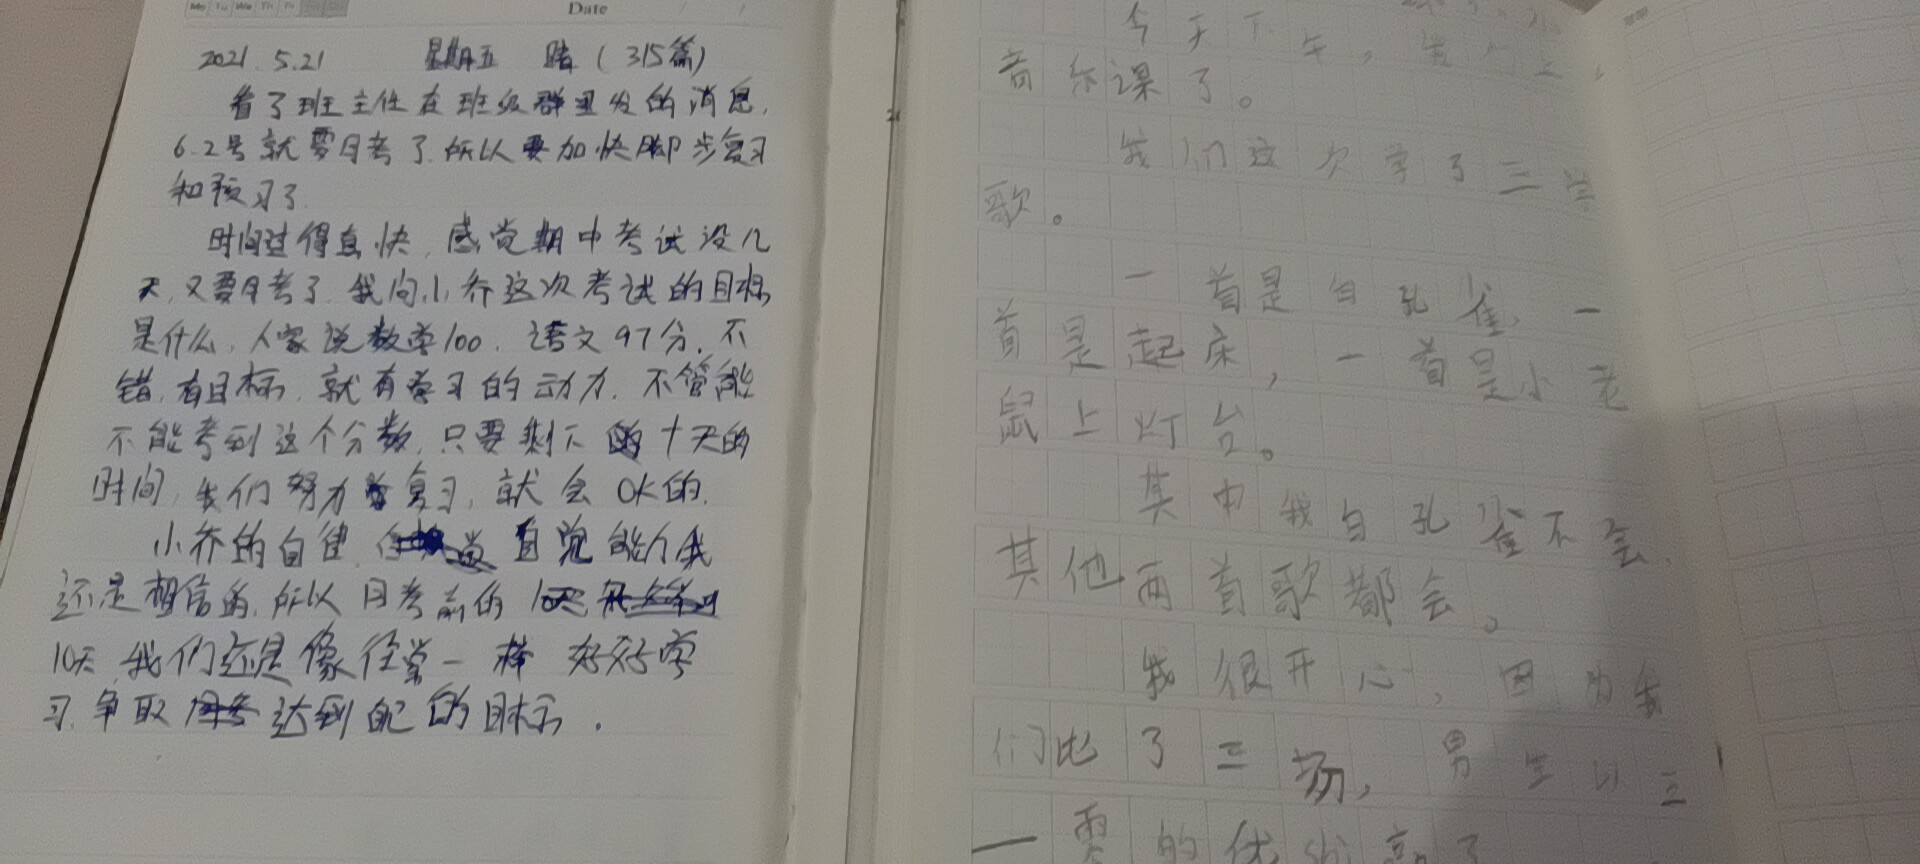 Mo Tu We Th Fr
Date
2021.5.21 星期五 晴(315篇)
看了班主任在班级群里发的消息,
6.2号就要月考了.所以要加快脚步复习
和预习了.
时间过得真快,感觉期中考试没几
天,又要月考了.我问小乔这次考试的目标
是什么,人家说数学100.语文97分.不
错,有目标,就有学习的动力.不管能
不能考到这个分数,只要剩下的十天的
时间,我们努力复习,就会OK的.
小乔的自律.自觉能力我
还是相信的,所以月考前的
10天,我们还是像往常一样 好好学
习.争取达到自己的目标.
今天下午,我们上
音乐课了。
我们这次学了三首
歌。
一首是白孔雀,一
首是起床,一首是小老
鼠上灯台。
其中我白孔雀不会,
其他两首歌都会。
我很开心,因为我
们比了三场,男生以三
一零的优势赢了